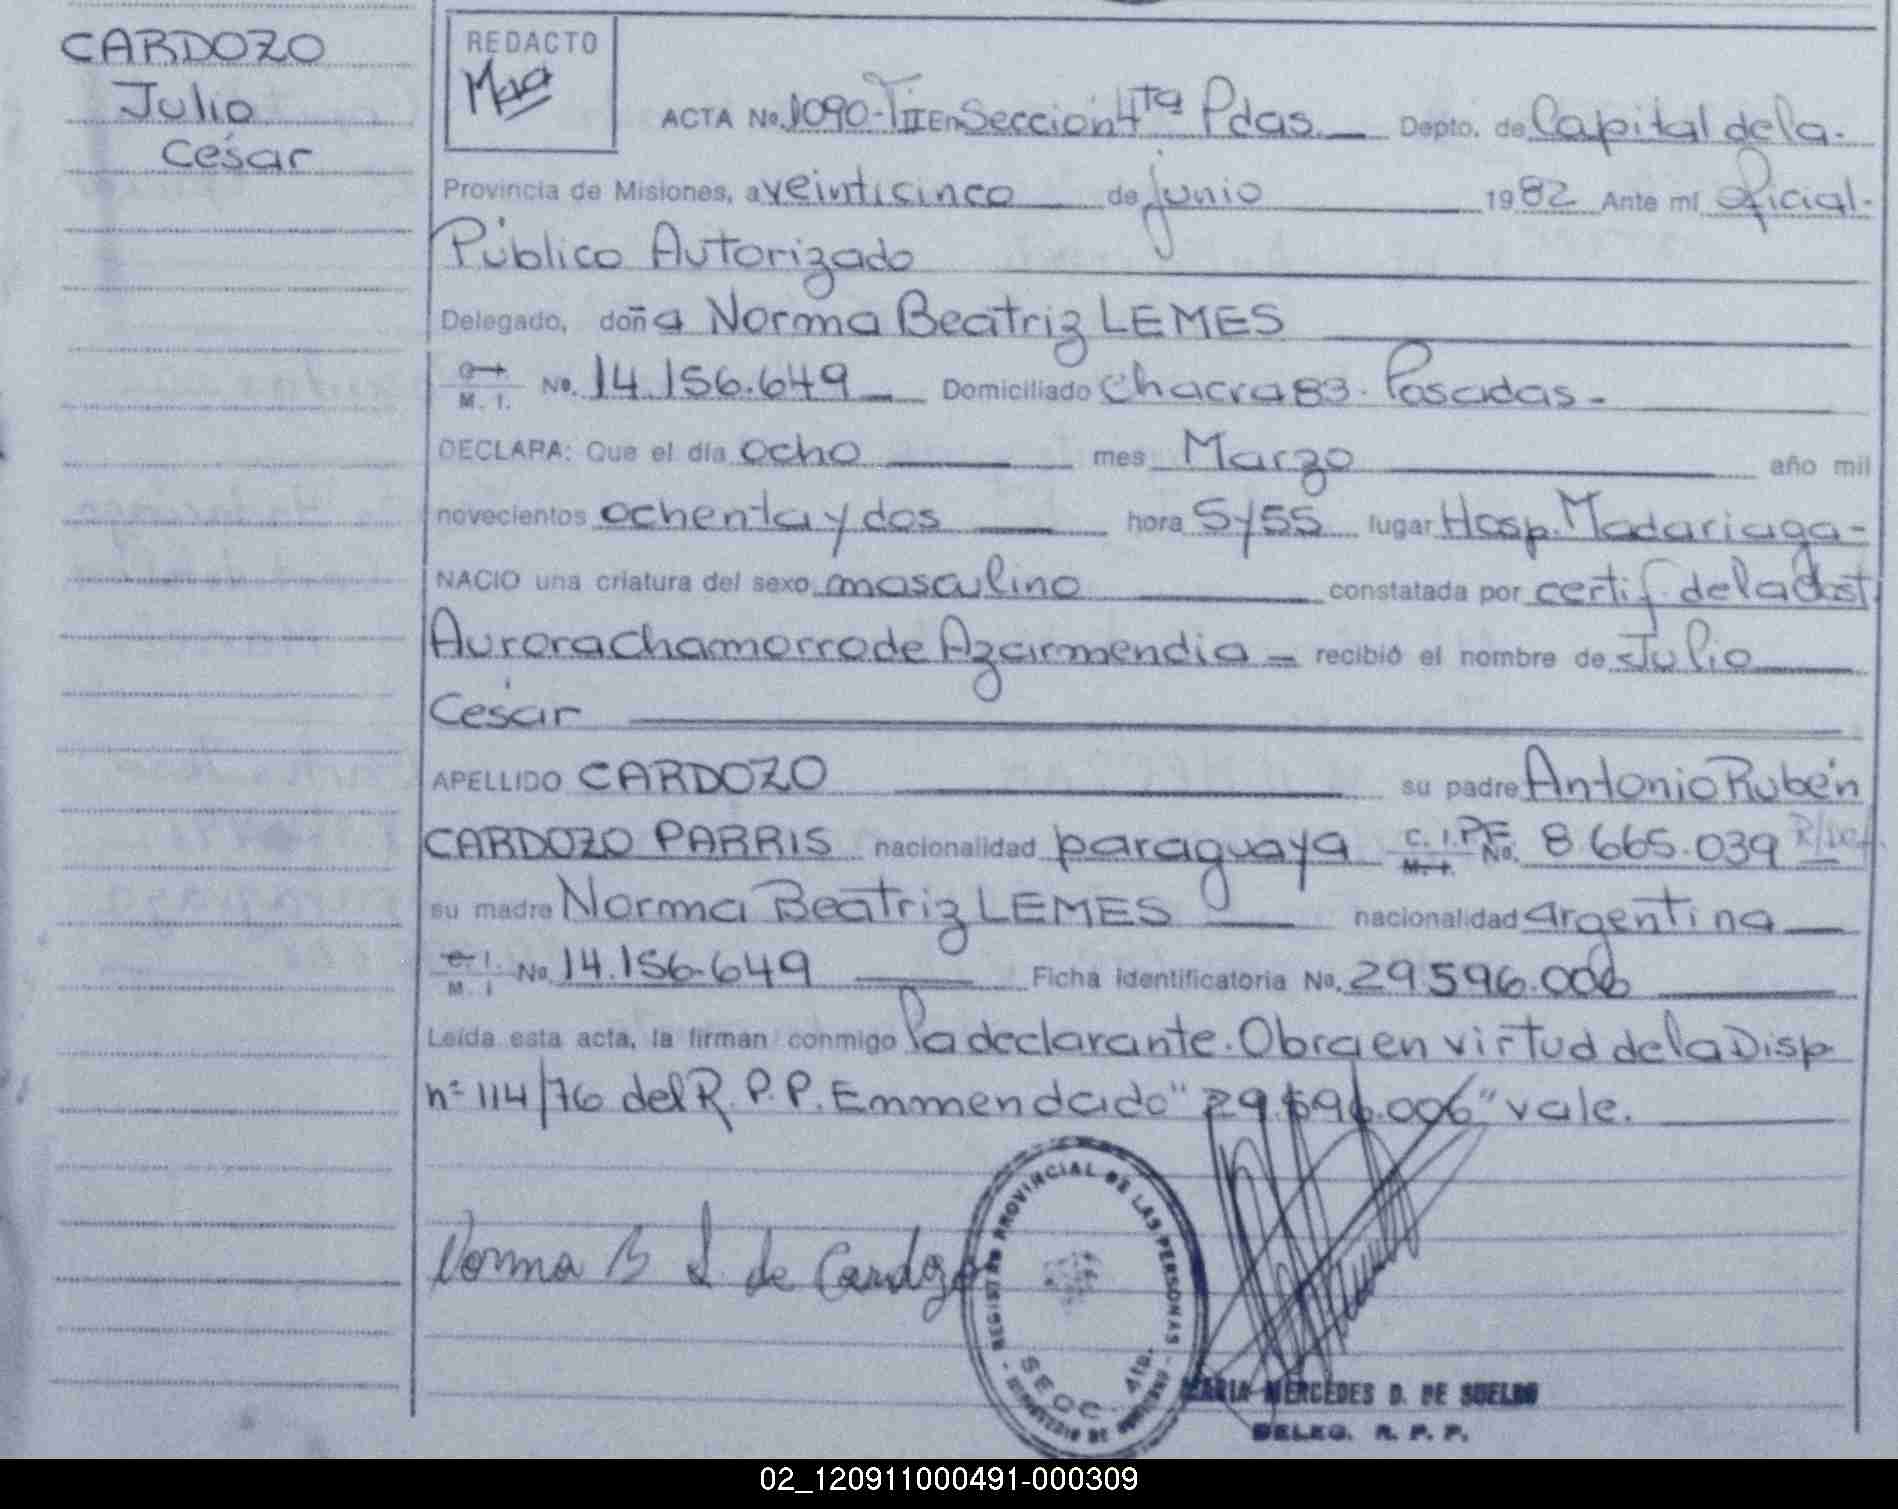 CARDOZO
Julio
César
REDACTO
ACTA No. 1090-TII En Sección 4ta Pdas. Depto. de Capital de la
Provincia de Misiones, a veinticinco de junio 1982 Ante mí Oficial
Público Autorizado
Delegado, doña Norma Beatriz LEMES
C.I. M. I. No. 14.156.649 Domiciliado Chacra 83. Posadas.
DECLARA: Que el día ocho mes Marzo año mil
novecientos ochenta y dos hora 5y55 lugar Hosp. Madariaga
NACIO una criatura del sexo masculino constatada por certif. de la Obst
Aurora Chamorro de Azarmendia recibió el nombre de Julio
César
APELLIDO CARDOZO su padre Antonio Rubén
CARDOZO PARRIS nacionalidad paraguaya C. I. PF. M. I. No. 8.665.039
su madre Norma Beatriz LEMES nacionalidad argentina
C.I. M. I No. 14.156.649 Ficha identificatoria No. 29.596.006
Leída esta acta, la firman conmigo la declarante. Obra en virtud de la Disp
nº 114/76 del R.P.P. Enmendado "29.596.006" vale.
Norma B L de Cardozo
REGISTRO PROVINCIAL DE LAS PERSONAS
SECC. 4ta.
MINISTERIO DE GOBIERNO
MARIA MERCEDES D. DE SUELDO
DELEG. R. P. P.
02_120911000491-000309